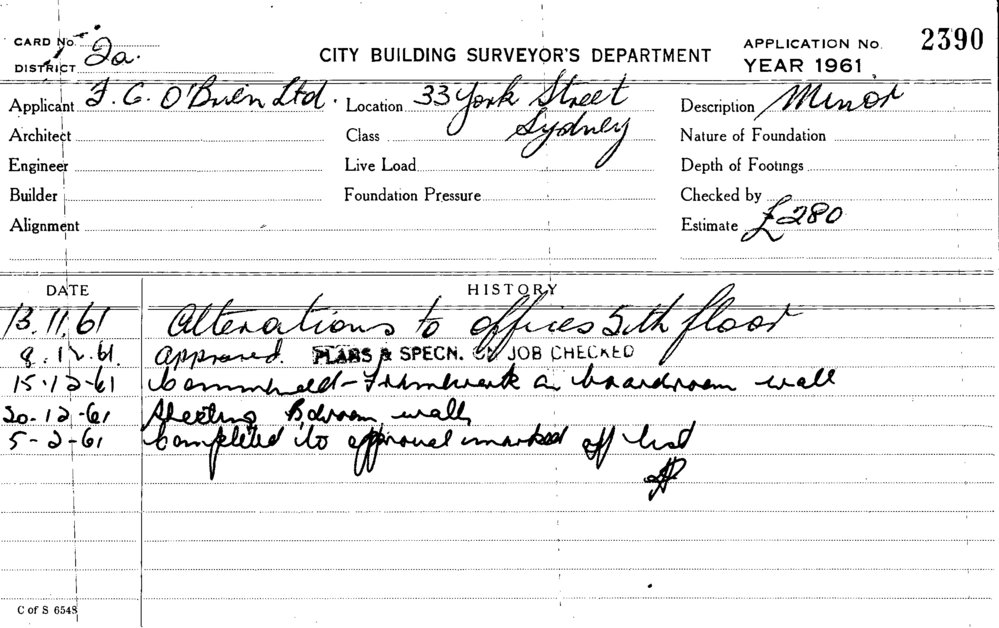 CARD No.
DISTRICT 2a.
CITY BUILDING SURVEYOR'S DEPARTMENT
APPLICATION No. 2390
YEAR 1961
Applicant F. G. O'Brien Ltd. Location 33 York Street Description Minor
Sydney
Architect Class Nature of Foundation
Engineer Live Load Depth of Footings
Builder Foundation Pressure Checked by
Alignment Estimate £280
DATE HISTORY
13.11.61 Alterations to offices 5th floor
8.12.61 Approved. PLANS & SPECN. ON JOB CHECKED
15-12-61 Commenced - Framework a boardroom wall
20-12-61 Sheeting Bdroom wall
5-2-61 Completed to approval marked off list
C of S 6548